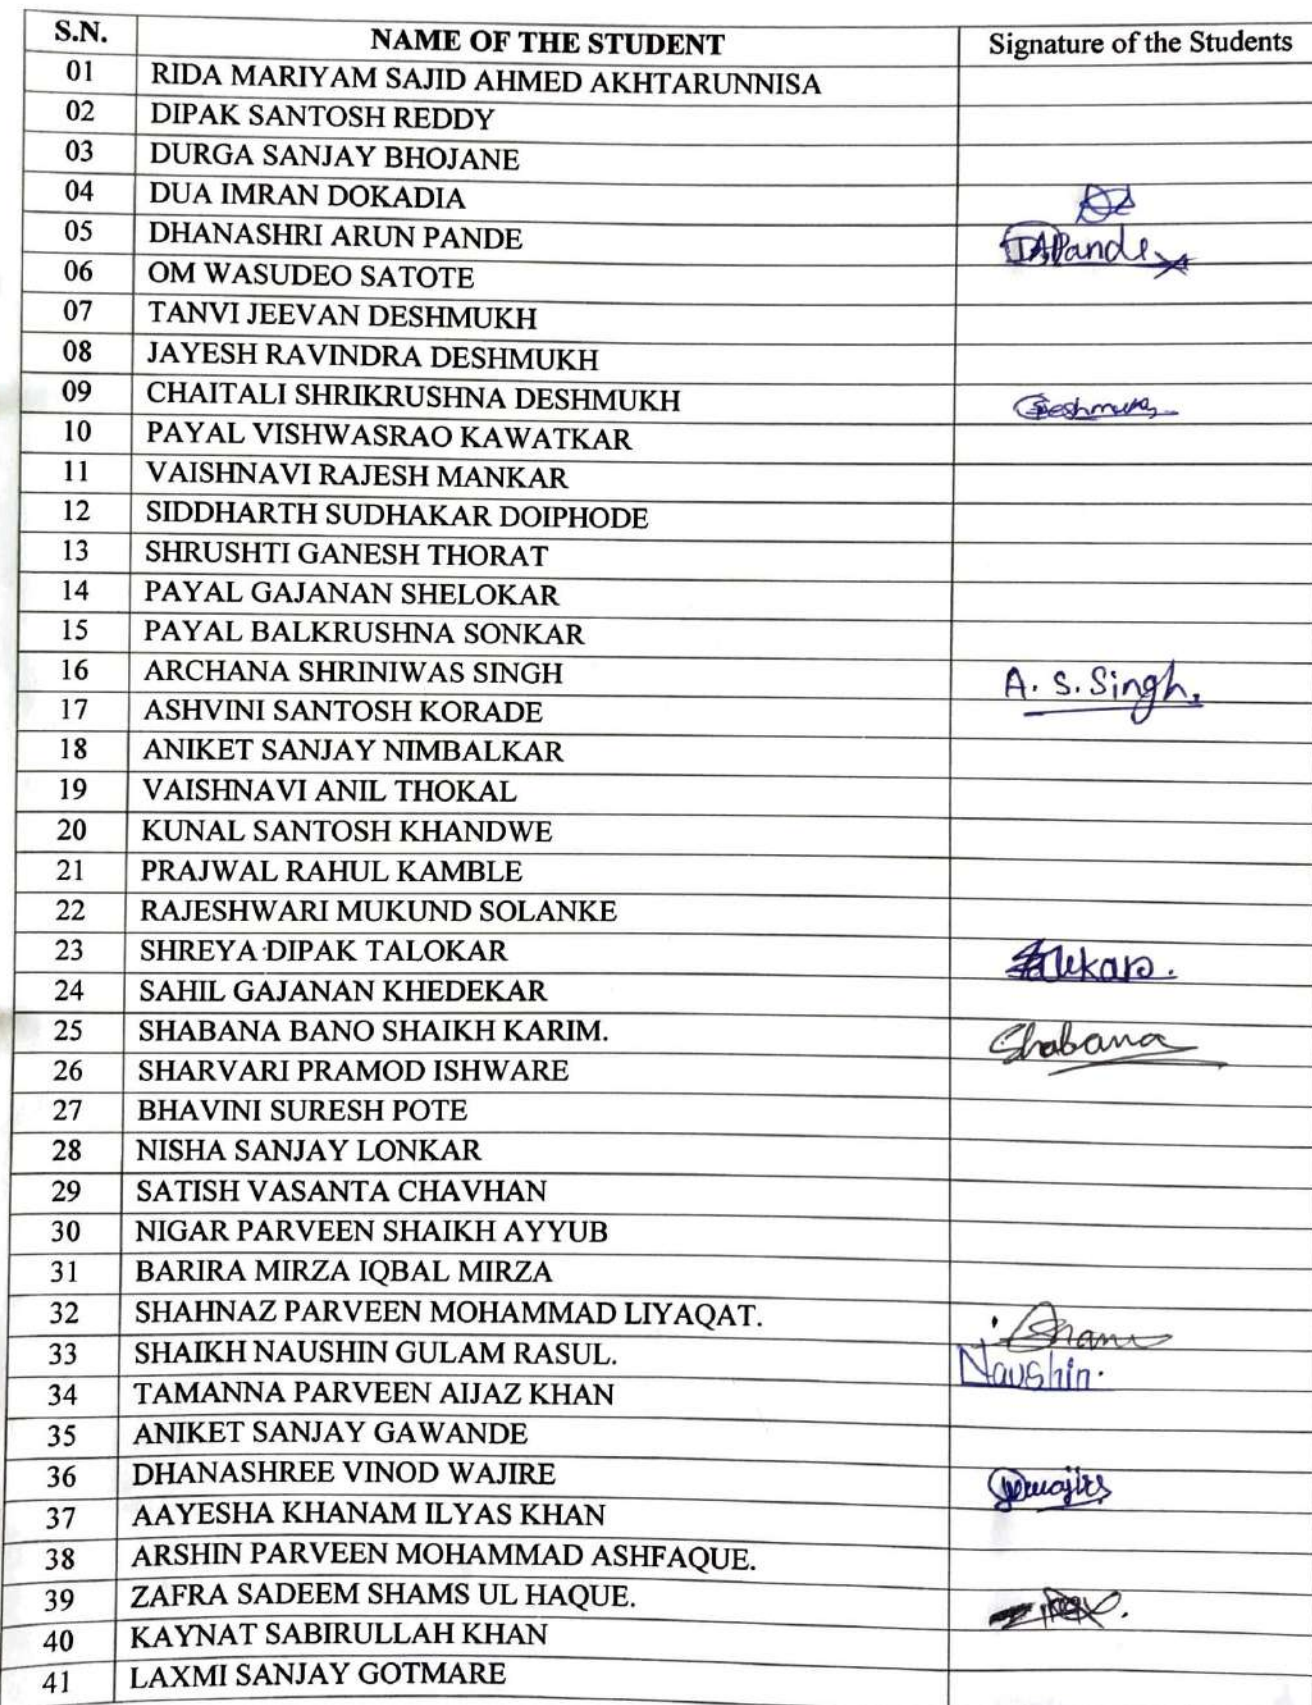 S.N. NAME OF THE STUDENT Signature of the Students
01 RIDA MARIYAM SAJID AHMED AKHTARUNNISA
02 DIPAK SANTOSH REDDY
03 DURGA SANJAY BHOJANE
04 DUA IMRAN DOKADIA
05 DHANASHRI ARUN PANDE DAPande
06 OM WASUDEO SATOTE
07 TANVI JEEVAN DESHMUKH
08 JAYESH RAVINDRA DESHMUKH
09 CHAITALI SHRIKRUSHNA DESHMUKH
10 PAYAL VISHWASRAO KAWATKAR
11 VAISHNAVI RAJESH MANKAR
12 SIDDHARTH SUDHAKAR DOIPHODE
13 SHRUSHTI GANESH THORAT
14 PAYAL GAJANAN SHELOKAR
15 PAYAL BALKRUSHNA SONKAR
16 ARCHANA SHRINIWAS SINGH A. S. Singh.
17 ASHVINI SANTOSH KORADE
18 ANIKET SANJAY NIMBALKAR
19 VAISHNAVI ANIL THOKAL
20 KUNAL SANTOSH KHANDWE
21 PRAJWAL RAHUL KAMBLE
22 RAJESHWARI MUKUND SOLANKE
23 SHREYA DIPAK TALOKAR
24 SAHIL GAJANAN KHEDEKAR
25 SHABANA BANO SHAIKH KARIM. Shabana
26 SHARVARI PRAMOD ISHWARE
27 BHAVINI SURESH POTE
28 NISHA SANJAY LONKAR
29 SATISH VASANTA CHAVHAN
30 NIGAR PARVEEN SHAIKH AYYUB
31 BARIRA MIRZA IQBAL MIRZA
32 SHAHNAZ PARVEEN MOHAMMAD LIYAQAT.
33 SHAIKH NAUSHIN GULAM RASUL. Naushin.
34 TAMANNA PARVEEN AIJAZ KHAN
35 ANIKET SANJAY GAWANDE
36 DHANASHREE VINOD WAJIRE
37 AAYESHA KHANAM ILYAS KHAN
38 ARSHIN PARVEEN MOHAMMAD ASHFAQUE.
39 ZAFRA SADEEM SHAMS UL HAQUE.
40 KAYNAT SABIRULLAH KHAN
41 LAXMI SANJAY GOTMARE